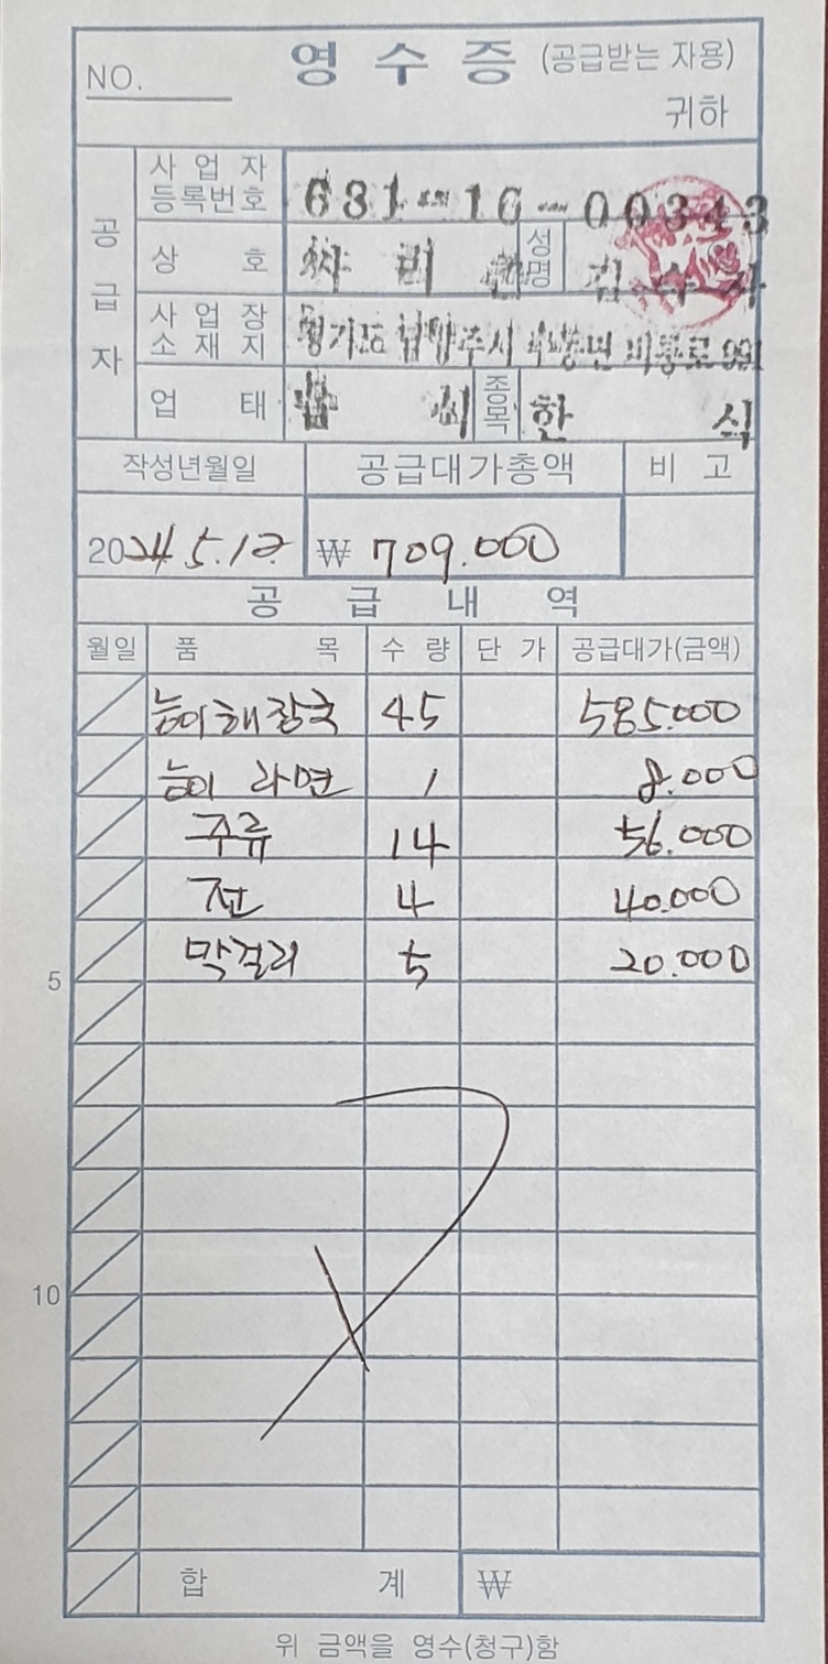 NO. 영 수 증 (공급받는 자용)
귀하
공급자
사업자등록번호 681-16-00343
상 호 성명
사업장소재지 경기도 남양주시
업 태 종목 한 식
작성년월일 공급대가총액 비 고
2024. 5. 12. ₩ 709.000
공 급 내 역
월일 품 목 수 량 단 가 공급대가(금액)
능이해장국 45 585.000
능이 라면 1 8.000
주류 14 56.000
전 4 40.000
5 막걸리 5 20.000
10
합 계 ₩
위 금액을 영수(청구)함